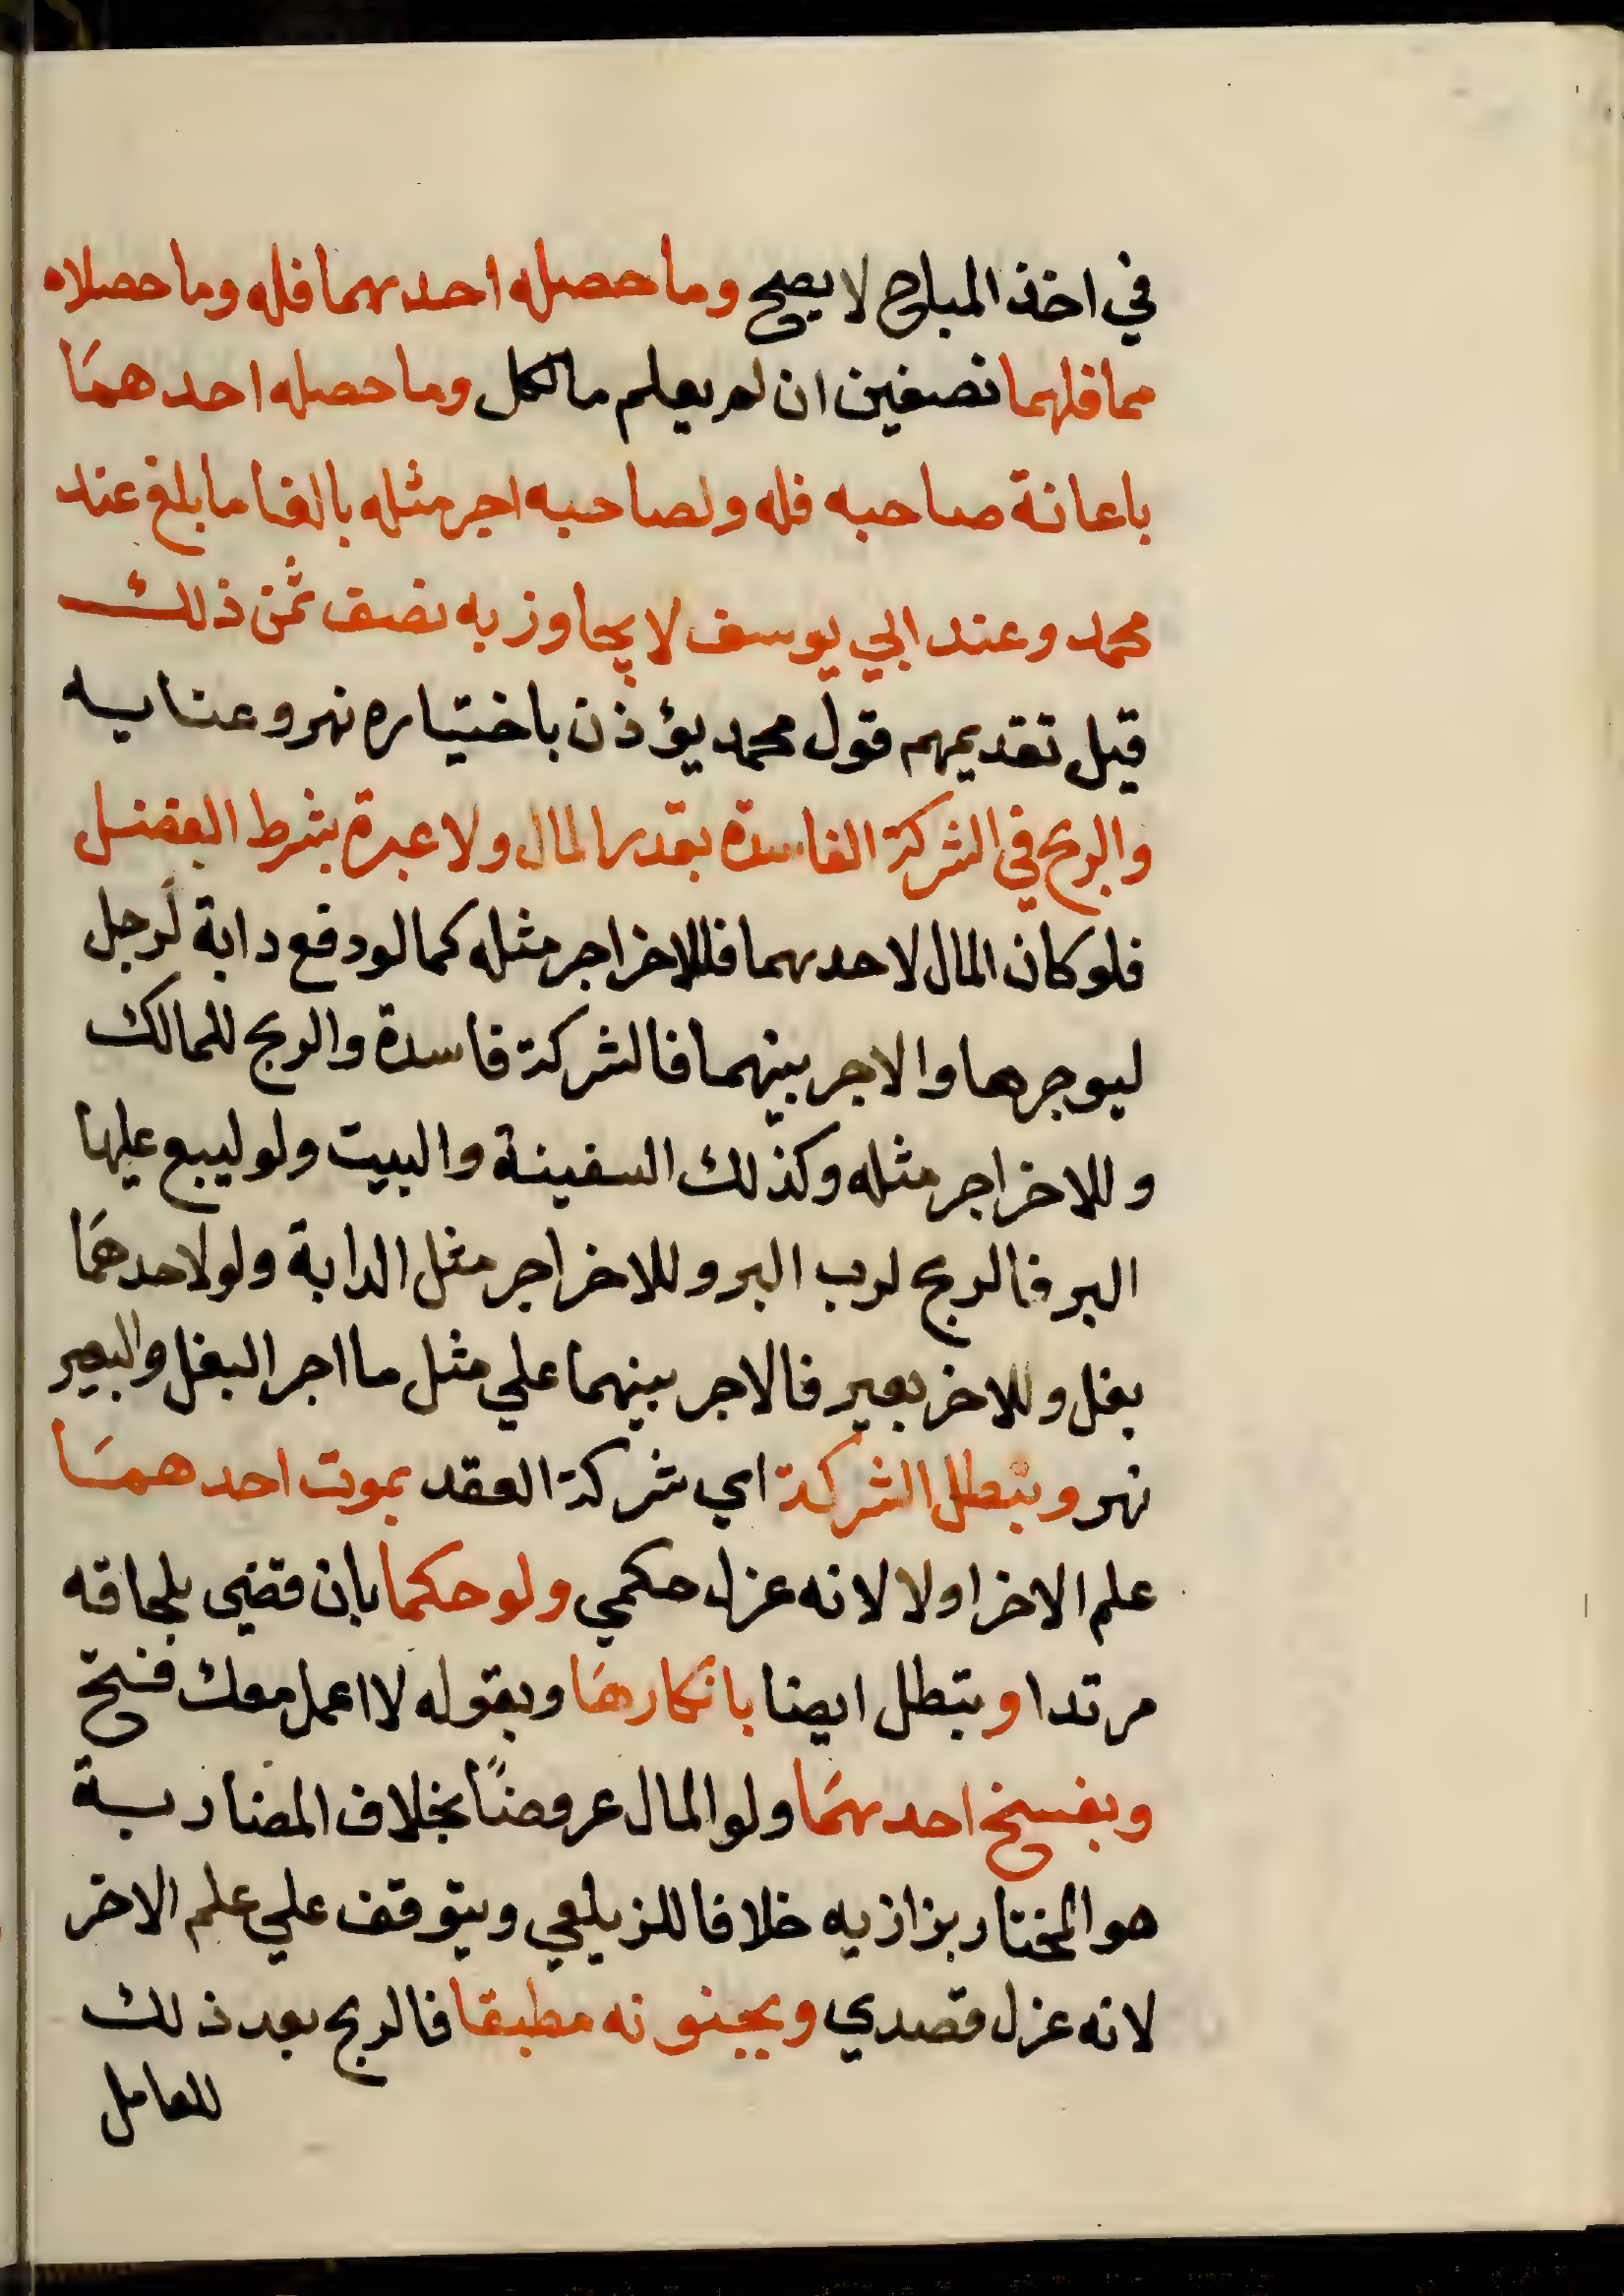 في اخذ المباح لا يصح وما حصله احدهما فله وما حصلاه
معا فلهما نصفين ان لم يعلم ما لكل وما حصله احدهمَا
باعانة صاحبه فله ولصاحبه اجر مثله بالغا ما بلغ عند
محمد وعند ابي يوسف لا يجاوز به نصف ثمن ذلك
قيل تقديمهم قول محمد يؤذن باختياره نهر وعنايه
والربح في الشركة الفاسدة بقدر المال ولا عبرة بشرط الفضل
فلو كان المال لاحدهما فللاخر اجر مثله كما لو دفع دابة لرجل
ليوجرها والاجر بينهما فالشركة فاسدة والربح للمالك
وللاخر اجر مثله وكذلك السفينة والبيت ولو ليبع عليها
البر فالربح لرب البر وللاخر اجر مثل الدابة ولو لاحدهمَا
بغل وللاخر بعير فالاجر بينهما علي مثل ما اجر البغل والبعير
نهر وتبطل الشركة اي شركة العقد بموت احدهمَا
علم الاخر اولا لانه عزل حكمي ولو حكما بان قضي بلحاقه
مرتدا وتبطل ايضا بانكارهَا وبقوله لا اعمل معك فتح
وبفسخ احدهمَا ولو المال عروضًا بخلاف المضاربة
هو المختار بزازيه خلافا للزيلعي ويتوقف علي علم الاخر
لانه عزل قصدي وبجنونه مطبقا فالربح بعد ذلك
للعامل